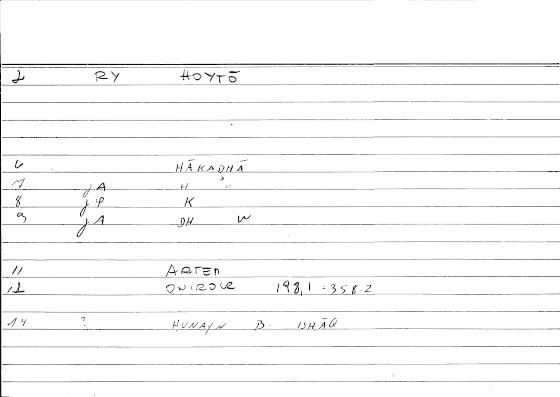 2 RY HOYTŌ
6 HĀKADHĀ
7 jA H
8 jP K
9 jA DH W
11 ARTEM
12 198,1 = 358.2
14 ? HUNAYN B. ISHĀQ